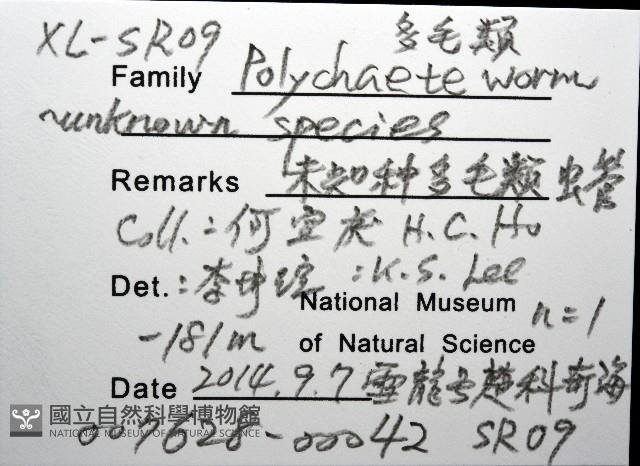 XL-SR09 多毛類
Family Polychaete worm
~unknown species
Remarks 未知种多毛類虫管
Coll.: 何宣慶 H.C. Ho
Det.: 李坤瑄 : K.S. Lee
National Museum n=1
-181m of Natural Science
Date 2014.9.7 雲龍号 科奇海
國立自然科學博物館
NATIONAL MUSEUM OF NATURAL SCIENCE
007628-00042 SR09